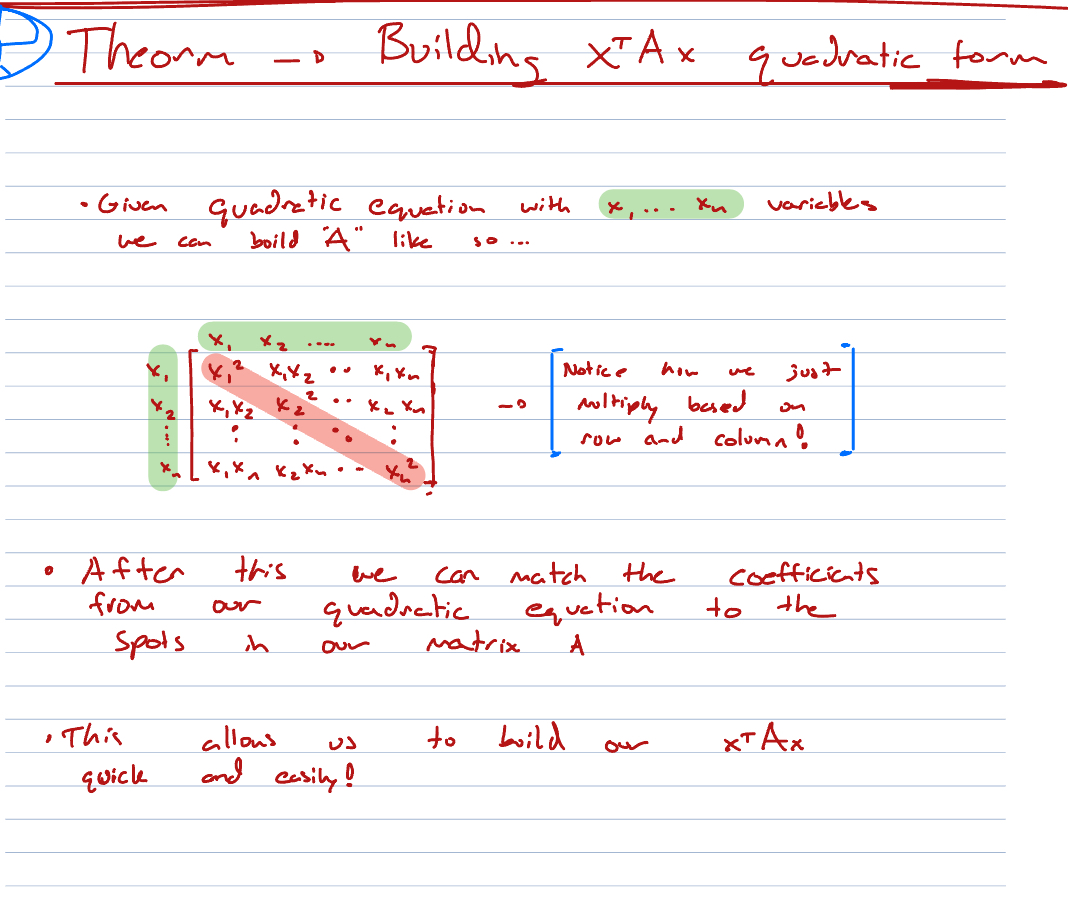 Theorm → Building xᵀAx quadratic form
• Given quadratic equation with x₁ ... xₙ variables
we can build "A" like so...
x₁ x₂ .... xₙ
x₁ x₁² x₁x₂ .. x₁xₙ
x₂ x₁x₂ x₂² .. x₂xₙ
⋮ ⋮ ⋮ ⋱ ⋮
xₙ x₁xₙ x₂xₙ ... xₙ²
→ Notice how we just
multiply based on
row and column!
• After this we can match the coefficients
from our quadratic equation to the
spots in our matrix A
• This allows us to build our xᵀAx
quick and easily!